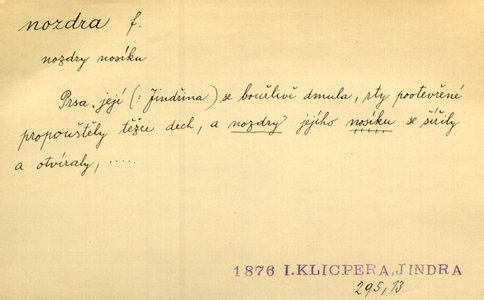 nozdra f.
nozdry nosíku
Prsa její (: Jindřina) se bouřlivě dmula, rty pootevřené
propouštěly těžce dech, a nozdry jejího nosíku se šířily
a otvíraly, .....
1876 I.KLICPERA, JINDRA
295,13